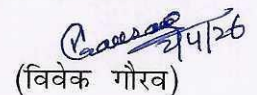 2/4/26
(विवेक गौरव)